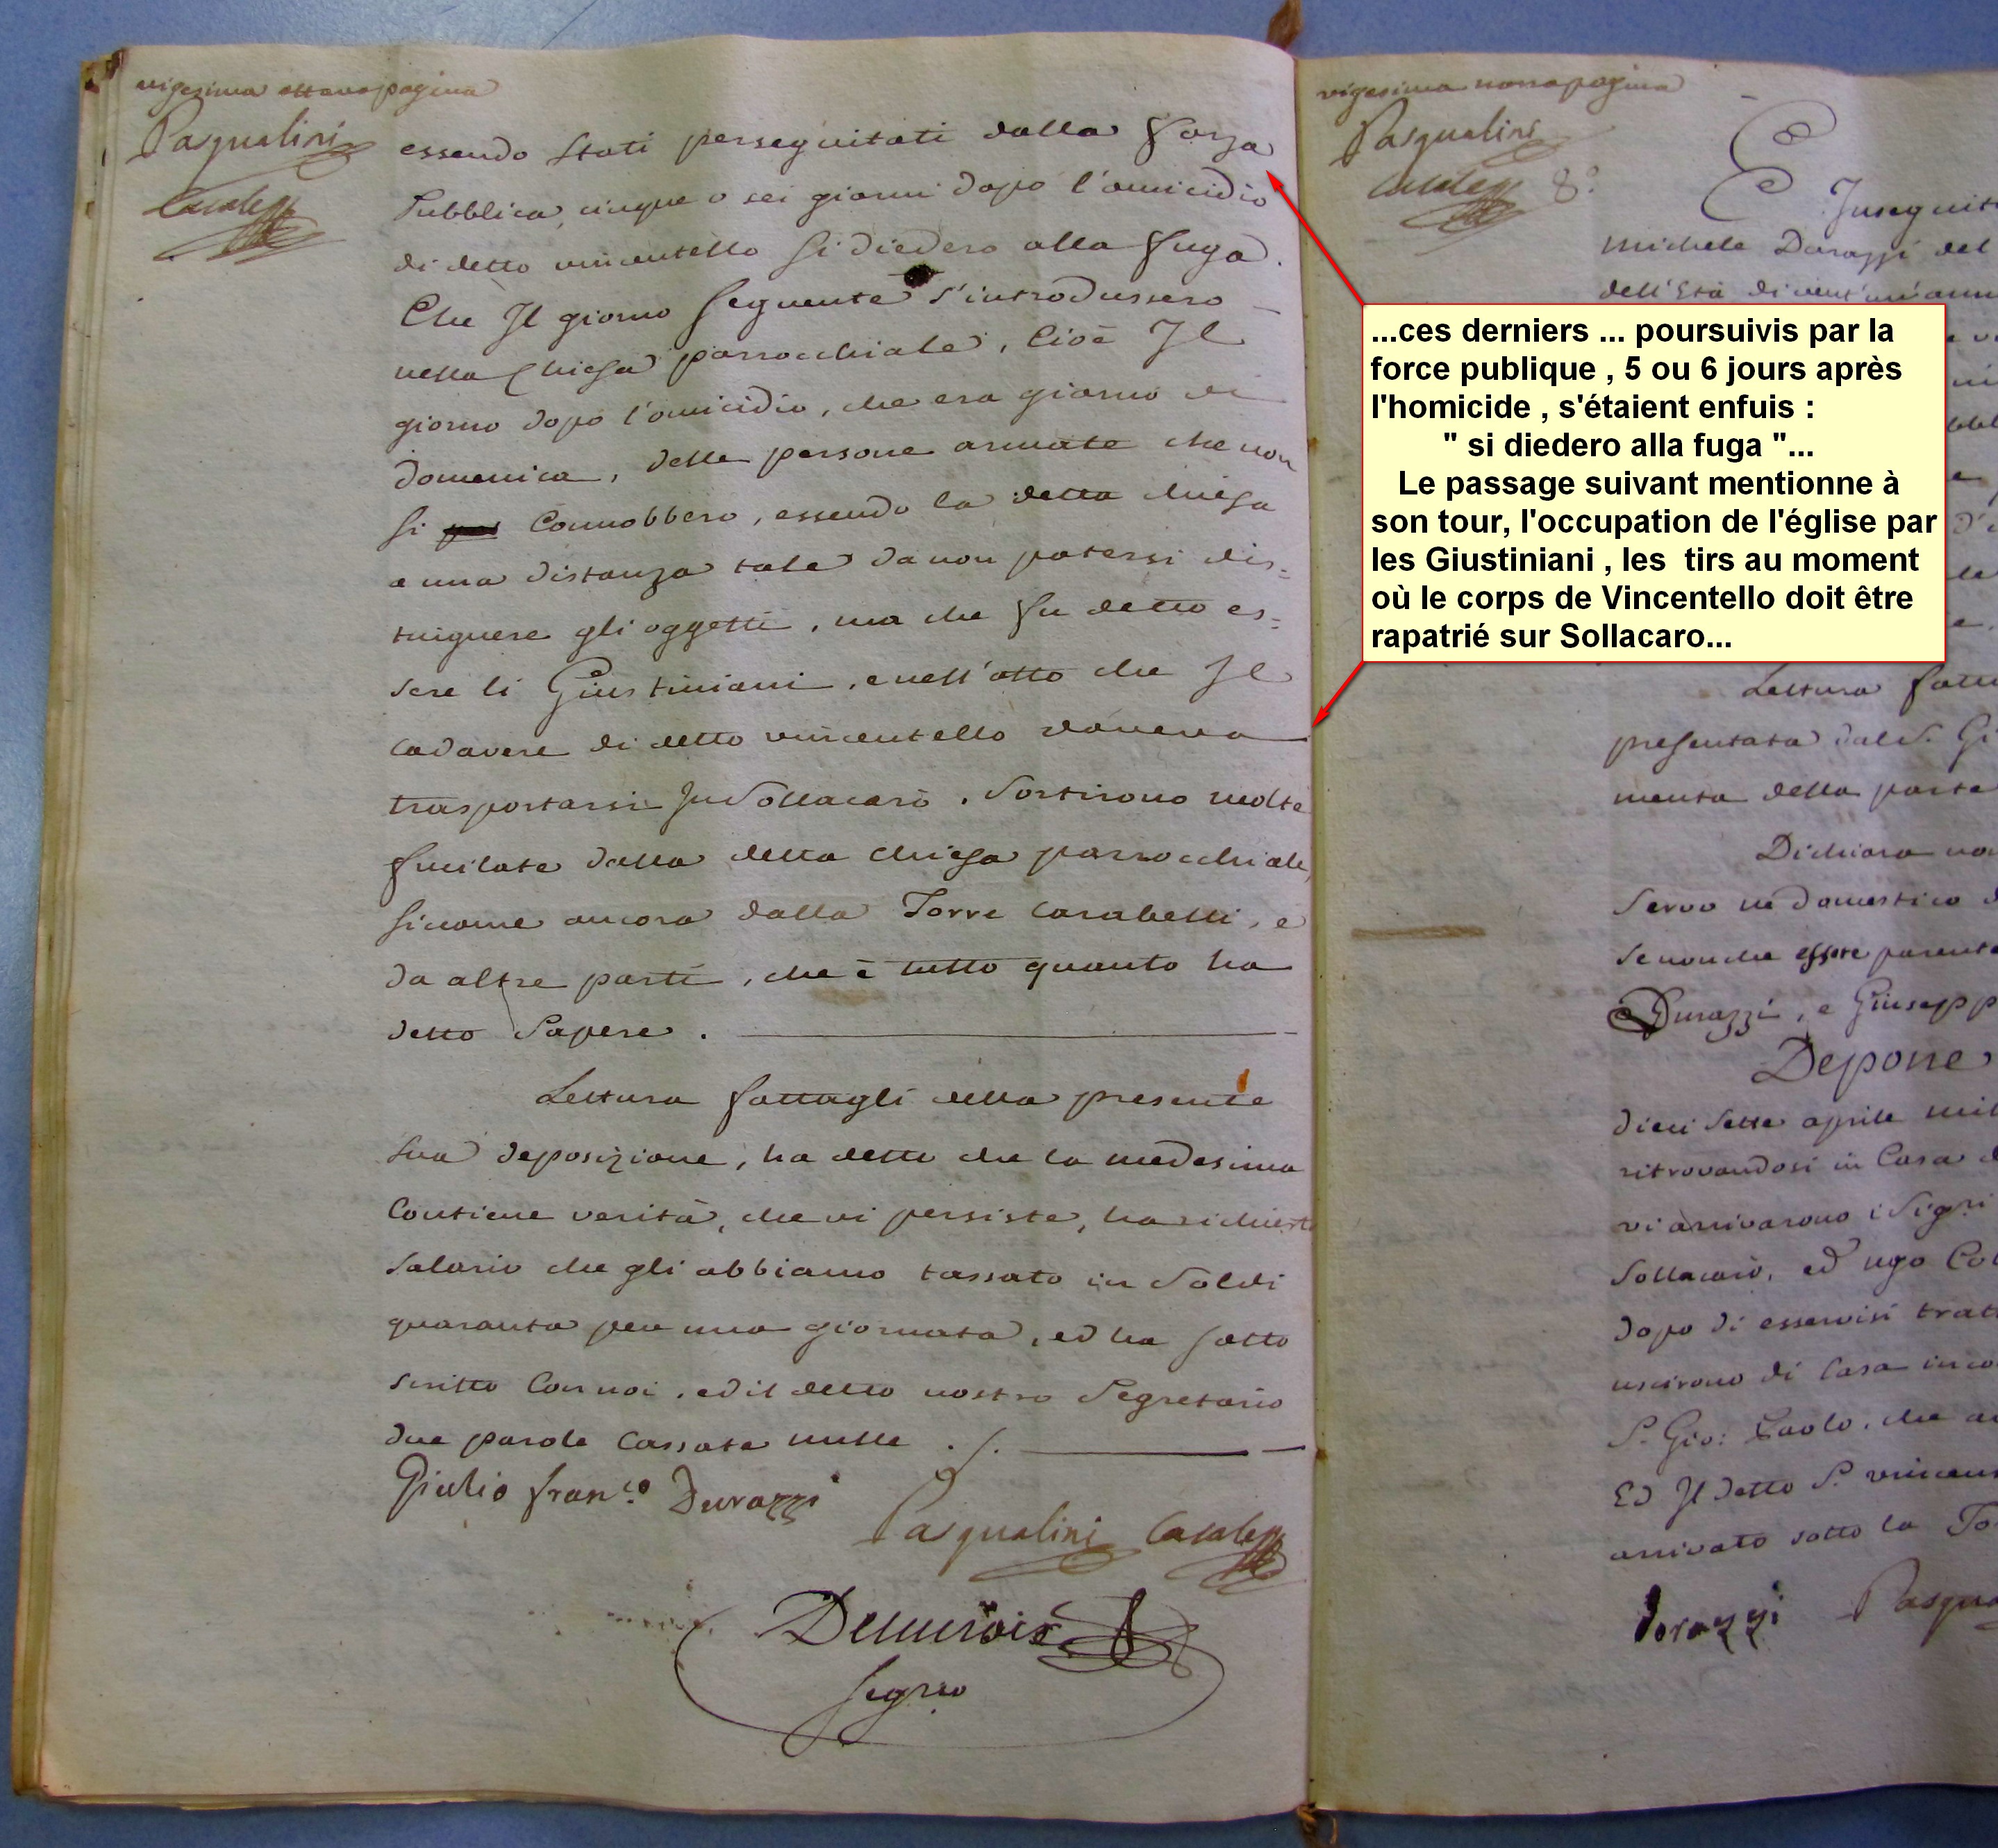 vigesima ottava pagina
Pasqualini
Casale
essendo stati perseguitati dalla forza
Pubblica, cinque o sei giorni dopo l'omicidio
di detto vincentello si diedero alla fuga.
Che Il giorno seguente s'introdussero
nella Chiesa parrocchiale, Cioè Il
giorno dopo l'omicidio, che era giorno di
domenica, delle persone armate che non
si Connobbero, essendo la detta chiesa
a una distanza tale da non potersi dis=
tinguere gli oggetti, ma che fu detto es=
sere li Giustiniani, e nell'atto che Il
Cadavere di detto vincentello doveva
trasportarsi In Sollacarò, Sortirono molte
fucilate dalla detta chiesa parrocchiale,
siccome ancora dalla Torre Carabelli, e
da altre parti, che è tutto quanto ha
detto Sapere.
Lettura fattagli della presente
sua deposizione, ha detto che la medesima
Contiene verità, che vi persiste, ha richiesto
Salario che gli abbiamo tassato in Soldi
quaranta per una giornata, ed ha sotto
scritto Con noi, ed il detto nostro Segretario
due parole Cassate nulle ./.
Giulio fran.co Durazzi
Pasqualini Casale
Segrio
vigesima nona pagina
Pasqualini
Casale
8°
E
Inseguit
Michele Durazzi del
dell'Età di vent'un'ann
...ces derniers ... poursuivis par la
force publique , 5 ou 6 jours après
l'homicide , s'étaient enfuis :
" si diedero alla fuga "...
Le passage suivant mentionne à
son tour, l'occupation de l'église par
les Giustiniani , les tirs au moment
où le corps de Vincentello doit être
rapatrié sur Sollacaro...
Lettura fatta
presentata dal S. Gi
menta della parte
Dichiara
Servo ne domestico d
Se non che essere parente
Durazzi, e Giusepp
Depone
dieci sette aprile mil
ritrovandosi in Casa d
vi arrivarono i Sigri
Sollacarò, ed ugo Col
dopo di esservisi tratt
uscirono di Casa
S. Gio: Paolo, che
Ed Il detto S. vincen
arrivato sotto la To
Durazzi Pasqua